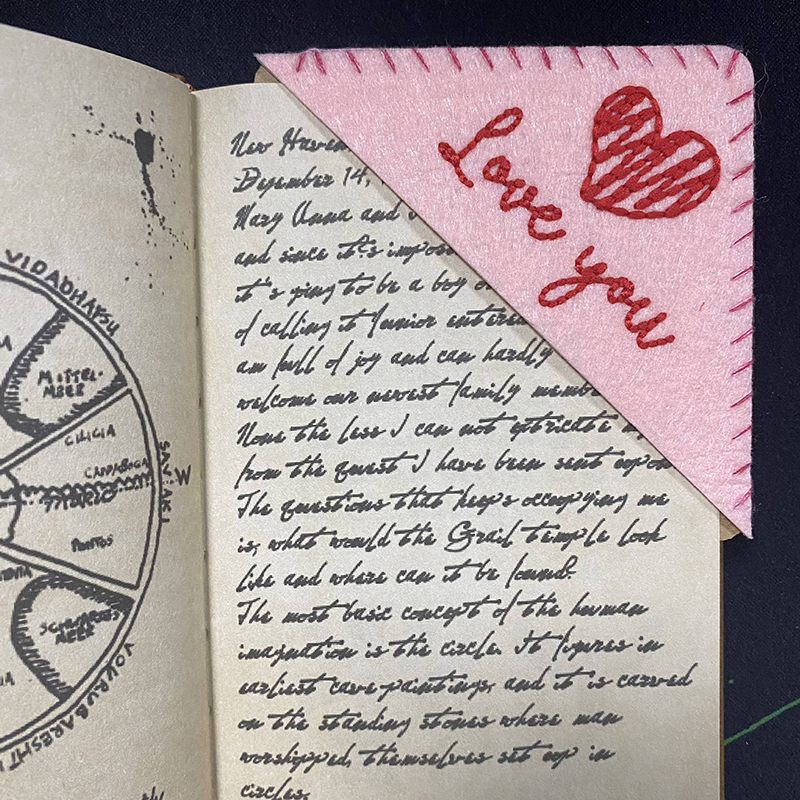 VIDADHAFSU
MITTEL-
MEER
CILICIA
CANDABAGA
PONTOS
SAVAHI
W
SCHWARZES
MEER
VOURUBARESHTI
New Haven
Dezember 14,
Mary Anna and
and since it's impos
it's going to be a boy o
of calling it Junior enterea
am full of joy and can hardly
welcome our newest family membe
None the less I can not eptricate
from the quest I have been sent upon
The questions that keeps occupying me
is, what would the Grail temple look
like and where can it be found?
The most basic concept of the human
imagination is the circle. It figures in
earliest cave-paintings, and it is carved
on the standing stones where man
worshipped, themselves set up in
circles.
Love you